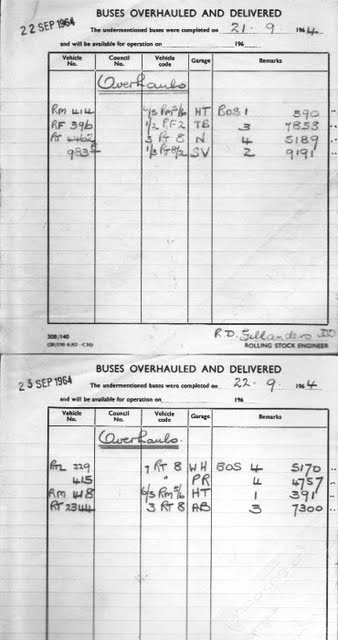 BUSES OVERHAULED AND DELIVERED
22 SEP 1964
The undermentioned buses were completed on 21 . 9 1964
and will be available for operation on 196
Vehicle No. Council No. Vehicle code Garage Remarks
Overhauls
RM 414 HT BOS 1 390
RF 396 1/2 RF 2 TB 3 7858
RT 4462 3 RT 8 N 4 5189
983 1/3 RT 8/2 SV 2 9191
R.D. DO
30B/140 ROLLING STOCK ENGINEER
BUSES OVERHAULED AND DELIVERED
23 SEP 1964
The undermentioned buses were completed on 22 . 9 1964
and will be available for operation on 196
Vehicle No. Council No. Vehicle code Garage Remarks
Overhauls.
RTL 229 7 RT 8 WH BOS 4 5170
415 " PR 4 4757
RM 418 6/5 RM 5/6 HT 1 391
RT 2344 3 RT 8 AB 3 7300